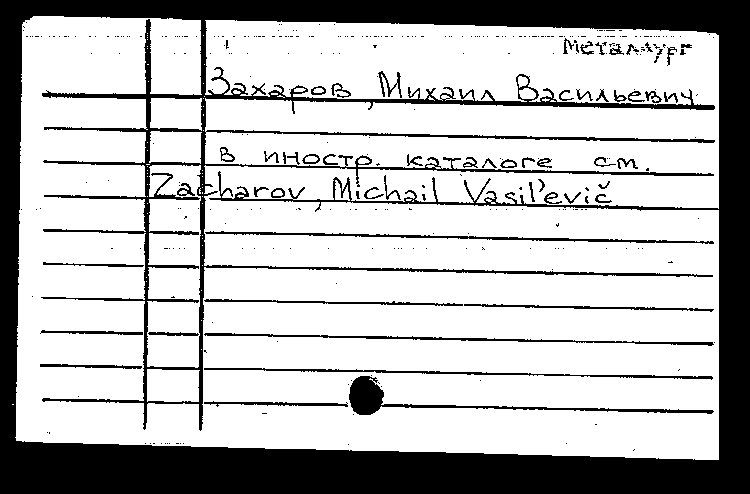 металлург
Захаров, Михаил Васильевич
в иностр. каталоге см.
Zacharov, Michail Vasil'evič